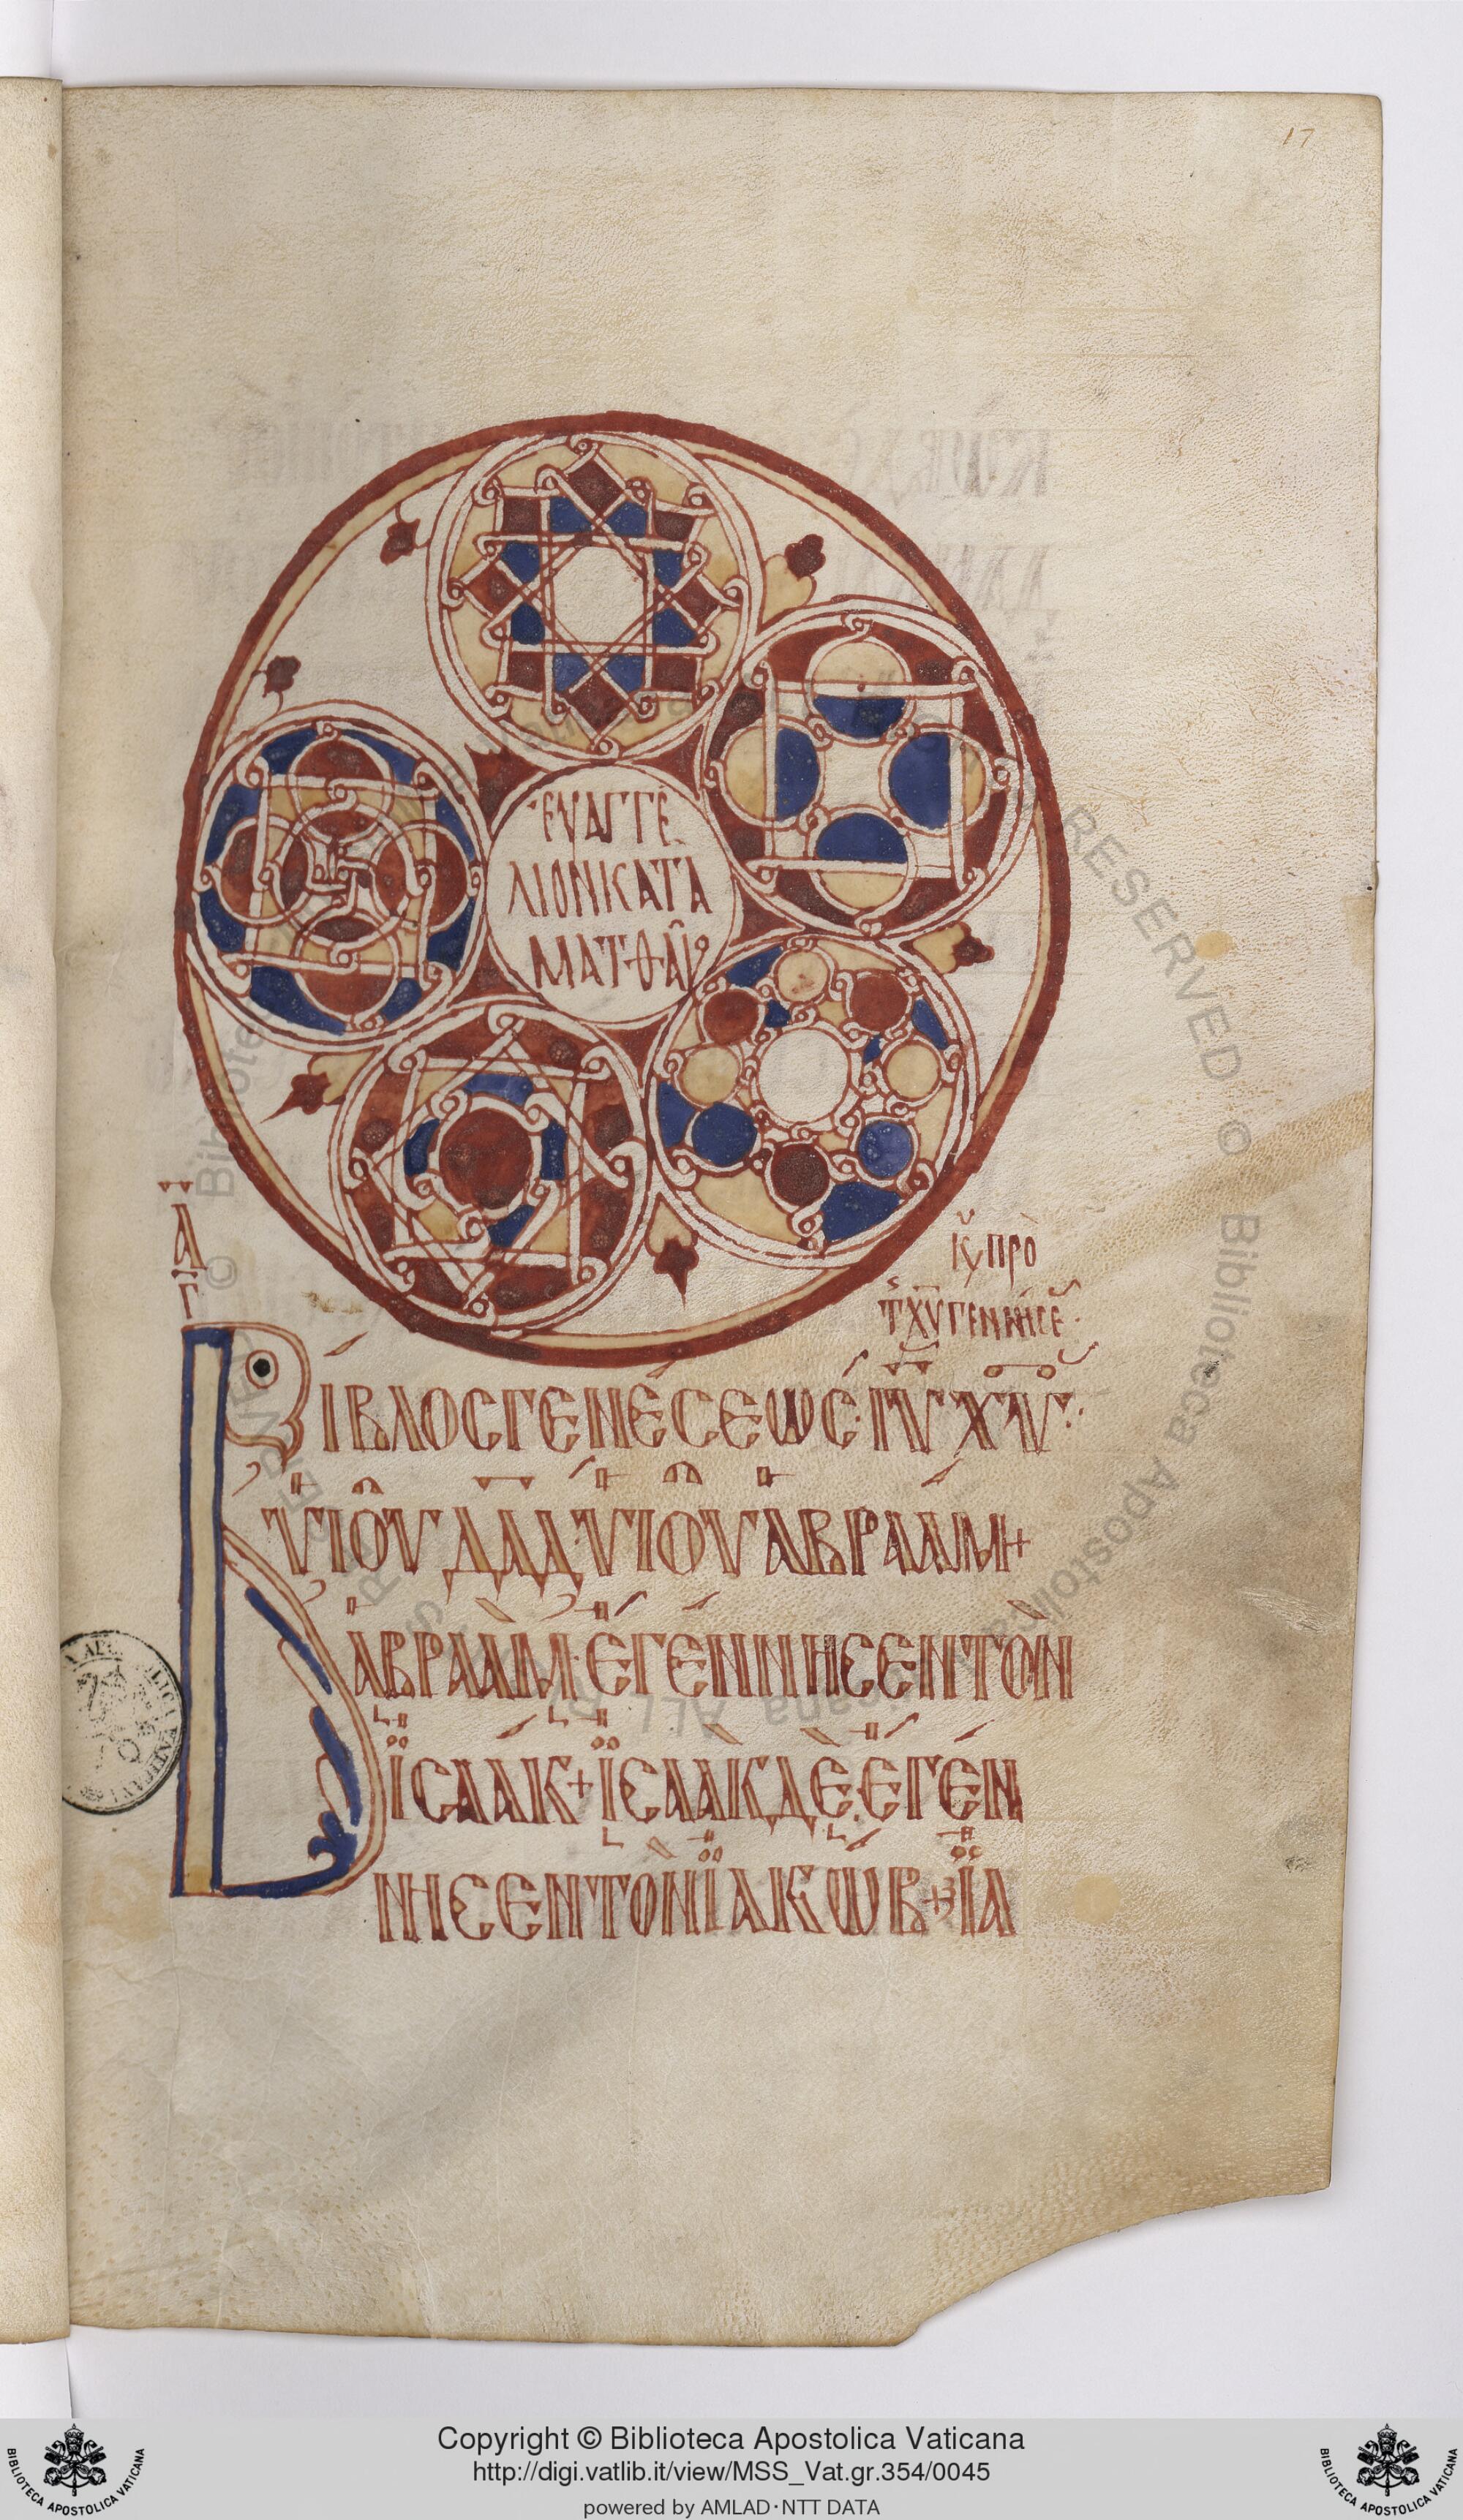 17
ΕΥΑΓΓΕ
ΛΙΟΝ ΚΑΤΑ
ΜΑΤΘΑΙ
Α
Γ
ΚΥ ΠΡΟ
Τ ΧΥ ΓΕΝΝΗСΕ
ΒΙΒΛΟС ΓΕΝΕСΕΩС· ΙΥ ΧΥ
ΥΙΟΥ ΔΑΔ· ΥΙΟΥ ΑΒΡΑΑΜ+
ΑΒΡΑΑΜ· ΕΓΕΝΝΗСΕΝ ΤΟΝ
ΪСΑΑΚ+ ΪСΑΑΚ ΔΕ· ΕΓΕΝ
ΝΗСΕΝ ΤΟΝ ΪΑΚΩΒ+ ΪΑ
Copyright © Biblioteca Apostolica Vaticana
http://digi.vatlib.it/view/MSS_Vat.gr.354/0045
powered by AMLAD·NTT DATA
BIBLIOTECA APOSTOLICA VATICANA
BIBLIOTECA APOSTOLICA VATICANA